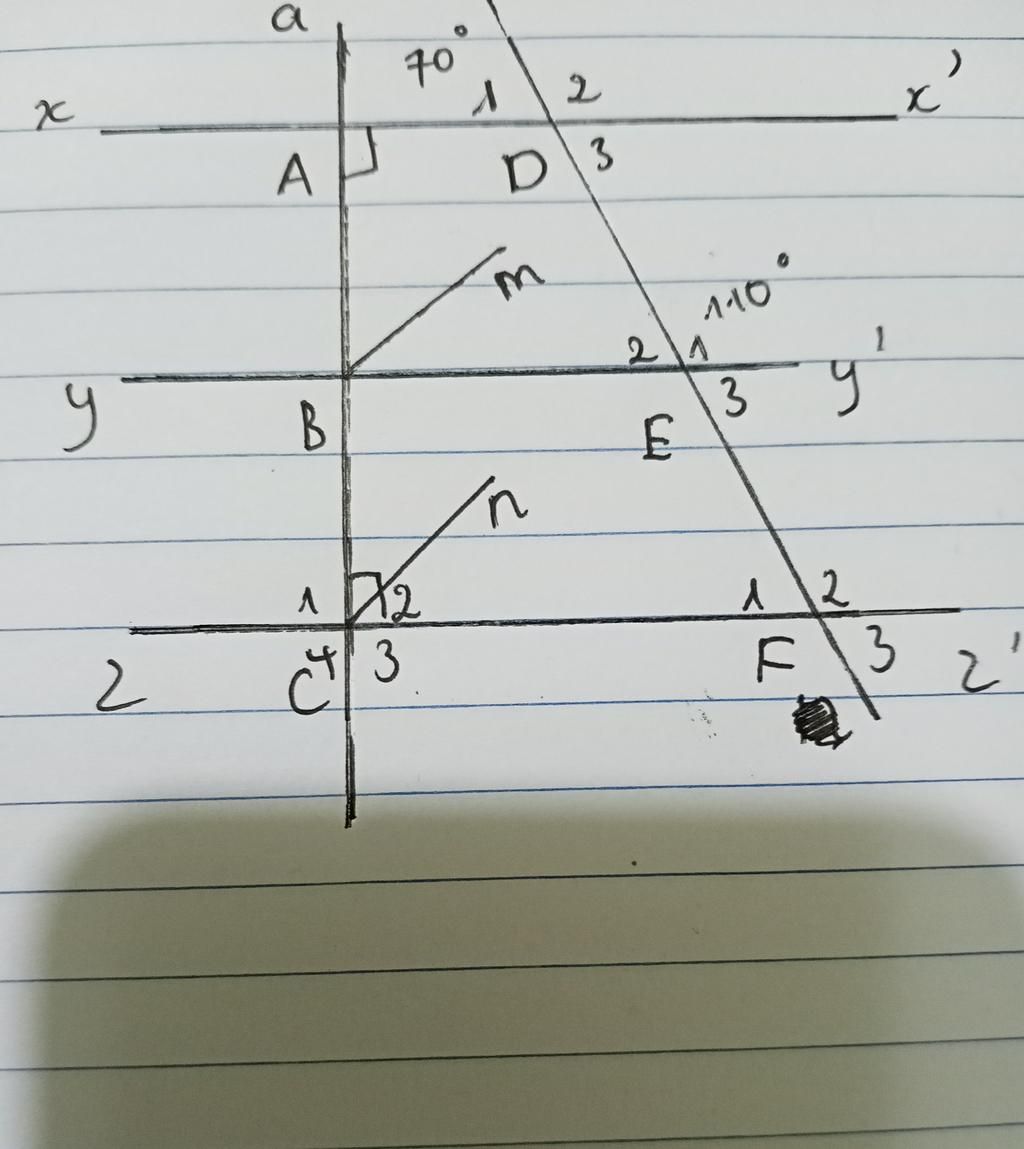 a
70°
x 1 2 x'
A D 3
m
110°
y 2 1 y'
B E 3
n
1 2 1 2
z C 4 3 F 3 z'